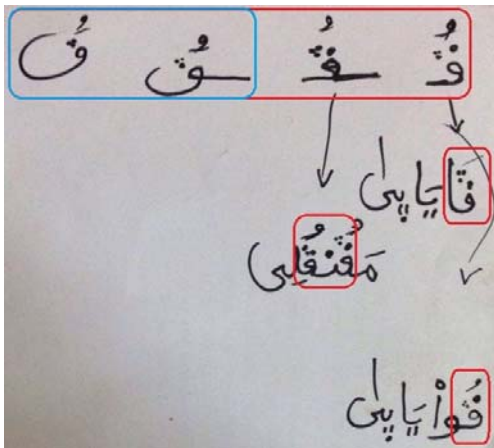 ڤُـ ـڤُـ ـڤُ ڤُ
ڤَايَاپىٰ
مَڤُنڤُلِى
ڤُواْيَاپىٰ